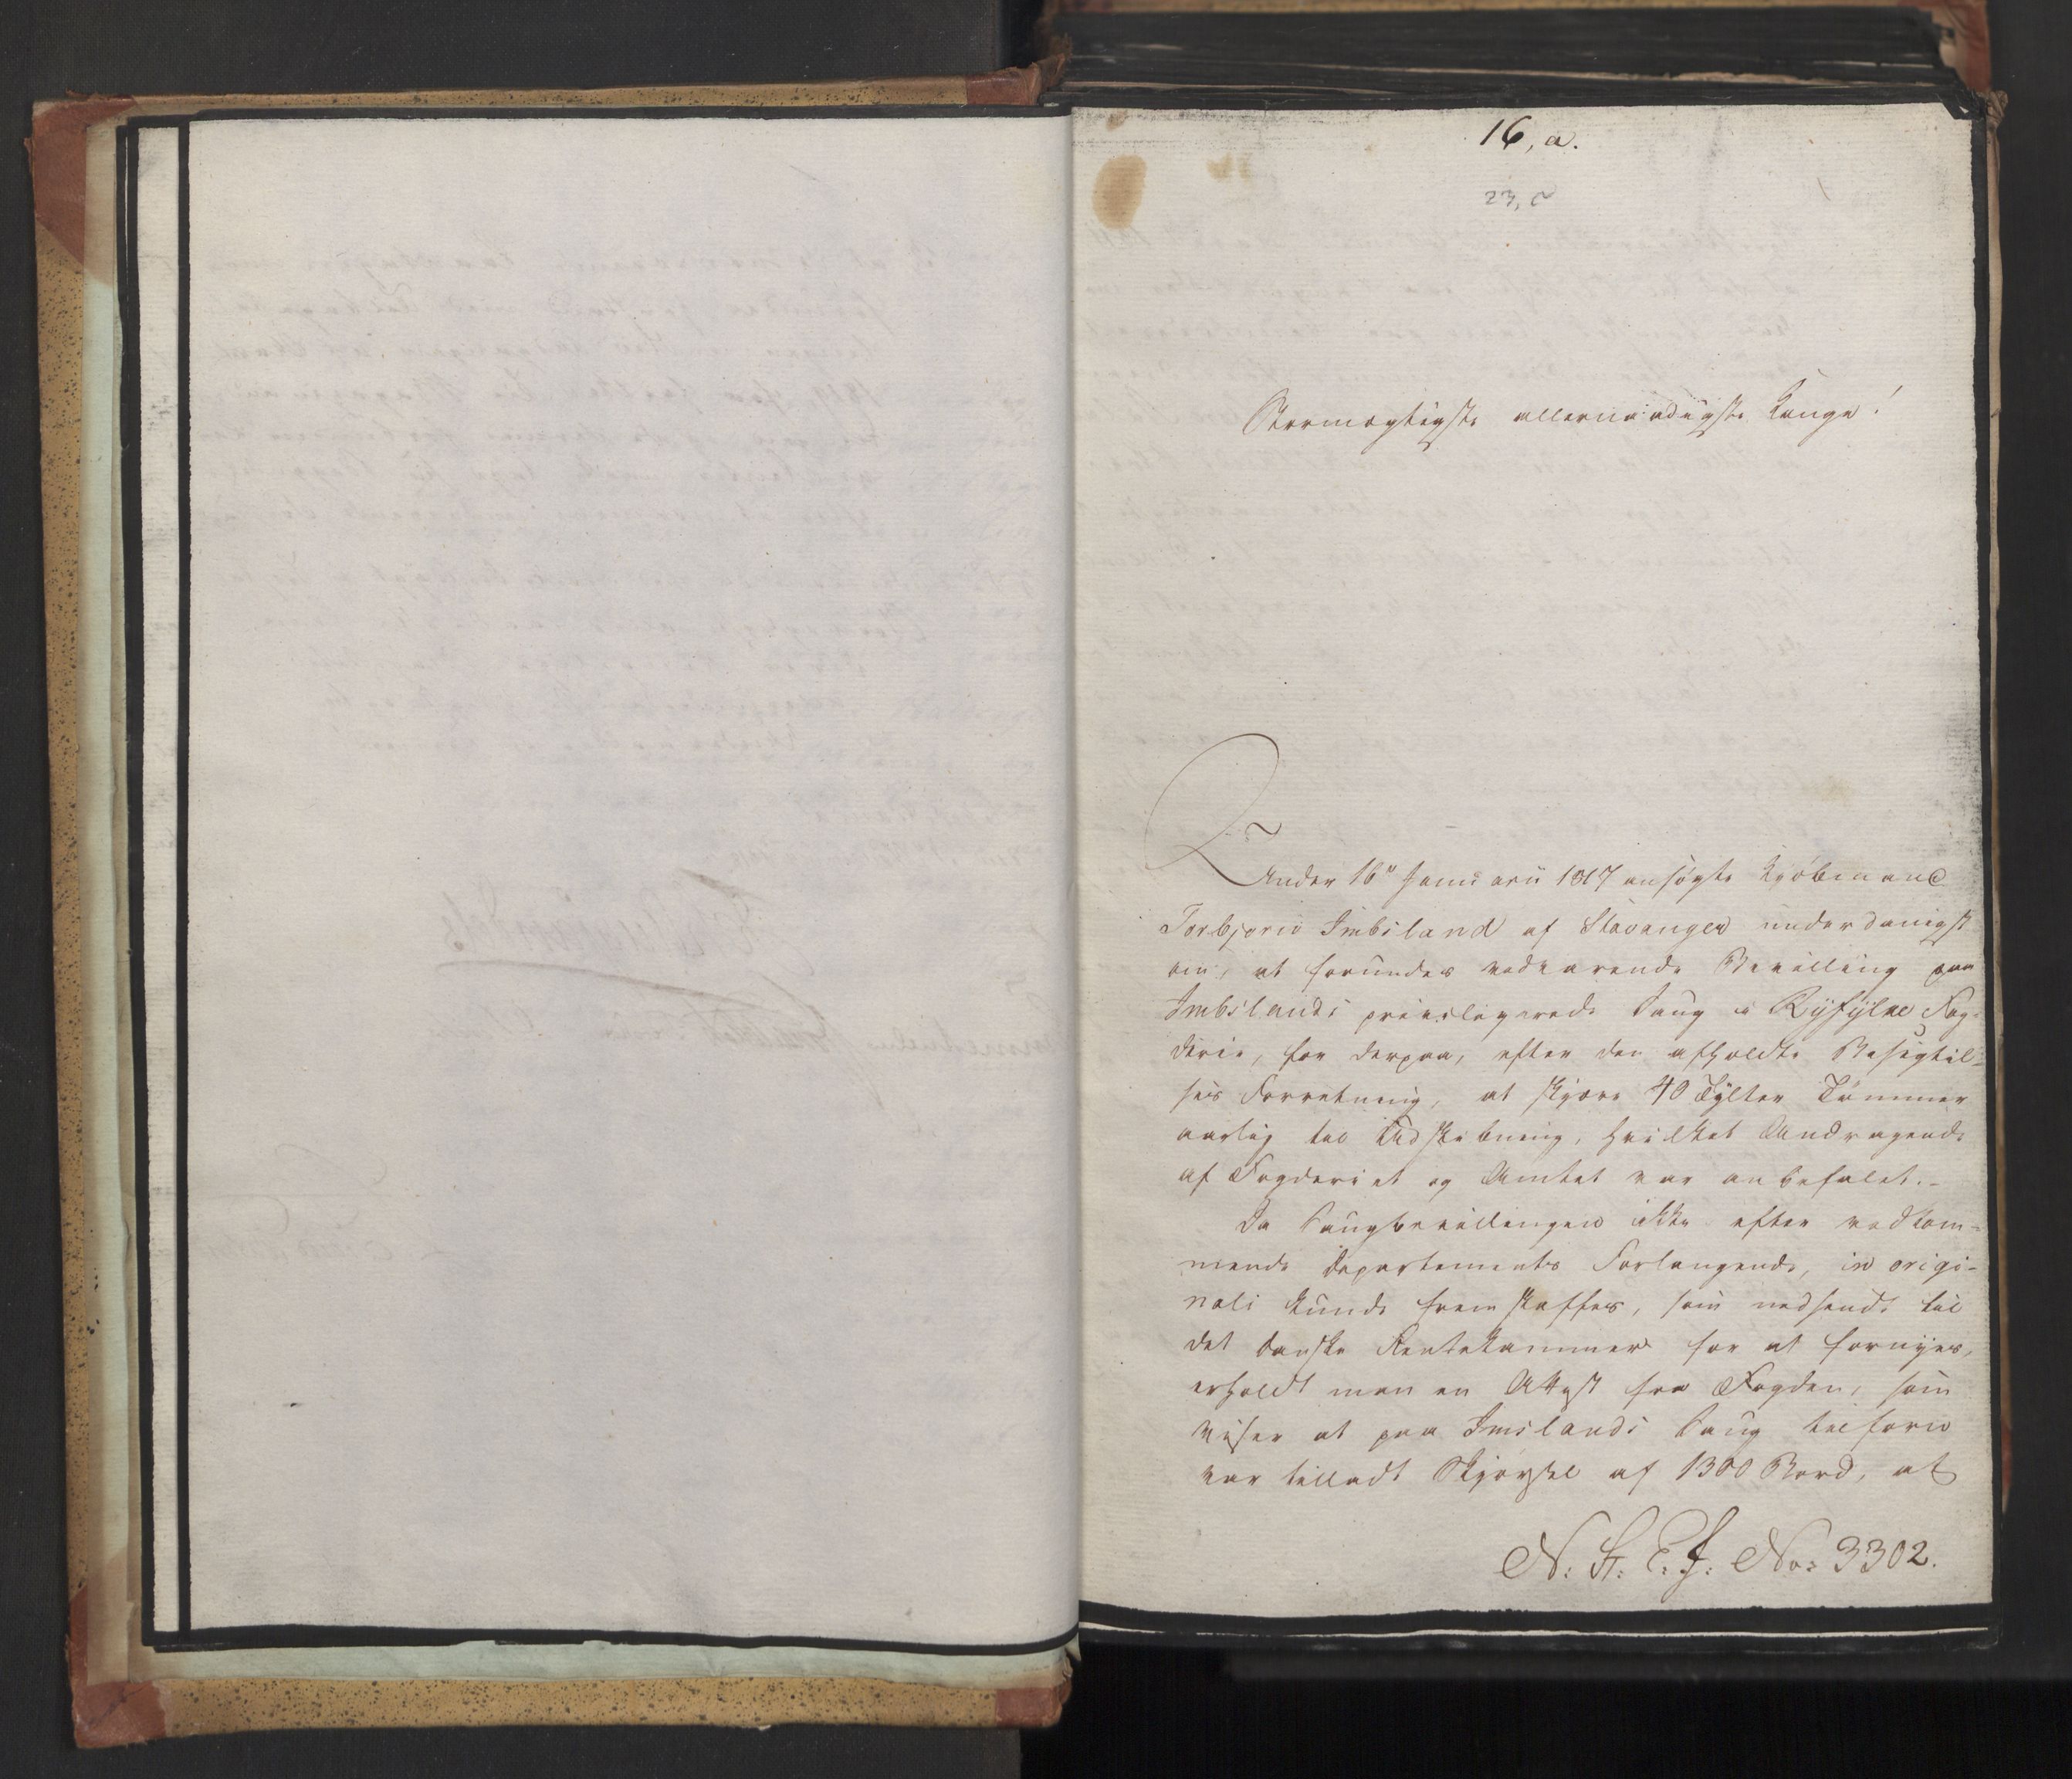 16, a.
23, c
Stormægtigste allernaadigste Konge!
Under 16de Januarii 1817 ansøgte Kjøbmand
Torbjørn Imbsland af Stavanger underdanigst
om, at forundes vedvarende Bevilling paa
Imbslands privilegerede Saug i Ryfylke Fog-
derie, for derpaa, efter den afholdte Besigtel-
ses Forretning, at skjære 40 Tylter Tømmer
aarlig til Udskibning, hvilket Andragende
af Fogderiet og Amtet var anbefalet.-
Da Saugbevillingen ikke efter vedkom-
mende Departements Forlangende, in origi-
nali kunde fremskaffes, som nedsendt til
det danske Rentekammer for at fornyes,
erholdt man en Attest fra Fogden, som
viser at paa Imslands Saug tilforn
var tilladt Skjørsel af 1300 Bord, at
N: St: E: J: No: 3302.